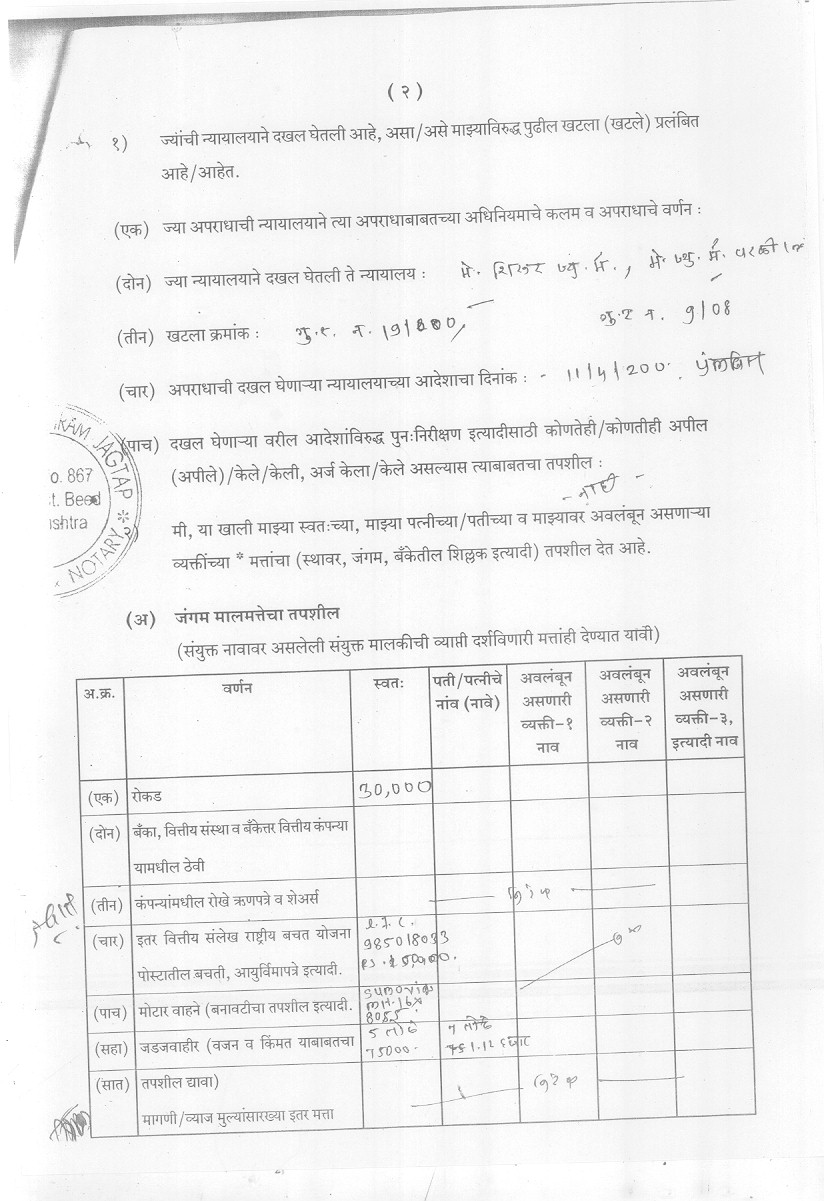 ( २ )
१) ज्यांची न्यायालयाने दखल घेतली आहे, असा/असे माझ्याविरुद्ध पुढील खटला (खटले) प्रलंबित
आहे/आहेत.
(एक) ज्या अपराधाची न्यायालयाने त्या अपराधाबाबतच्या अधिनियमाचे कलम व अपराधाचे वर्णन :
(दोन) ज्या न्यायालयाने दखल घेतली ते न्यायालय :
(तीन) खटला क्रमांक : गु.र. न. 9/08
(चार) अपराधाची दखल घेणाऱ्या न्यायालयाच्या आदेशाचा दिनांक : -
(पाच) दखल घेणाऱ्या वरील आदेशांविरुद्ध पुनःनिरीक्षण इत्यादीसाठी कोणतेही/कोणतीही अपील
(अपीले)/केले/केली, अर्ज केला/केले असल्यास त्याबाबतचा तपशील :
- नाही -
RAM JAGTAP
o. 867
t. Beed
shtra
NOTARY
२) मी, या खाली माझ्या स्वतःच्या, माझ्या पत्नीच्या/पतीच्या व माझ्यावर अवलंबून असणाऱ्या
व्यक्तींच्या * मत्तांचा (स्थावर, जंगम, बँकेतील शिल्लक इत्यादी) तपशील देत आहे.
(अ) जंगम मालमत्तेचा तपशील
(संयुक्त नावावर असलेली संयुक्त मालकीची व्याप्ती दर्शविणारी मत्तांही देण्यात यावी)
अ.क्र. वर्णन स्वतः पती/पत्नीचे अवलंबून अवलंबून अवलंबून
नांव (नावे) असणारी असणारी असणारी
व्यक्ती-१ व्यक्ती-२ व्यक्ती-३,
नाव नाव इत्यादी नाव
(एक) रोकड 30,000
(दोन) बँका, वित्तीय संस्था व बँकेत्तर वित्तीय कंपन्या
यामधील ठेवी
(तीन) कंपन्यांमधील रोखे ऋणपत्रे व शेअर्स निरंक
(चार) इतर वित्तीय संलेख राष्ट्रीय बचत योजना 985018033
पोस्टातील बचती, आयुर्विमापत्रे इत्यादी.
(पाच) मोटार वाहने (बनावटीचा तपशील इत्यादी. 8055
(सहा) जडजवाहीर (वजन व किंमत याबाबतचा 5 तोळे 75000
(सात) तपशील द्यावा) निरंक
मागणी/व्याज मुल्यांसारख्या इतर मत्ता